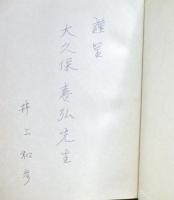 謹呈
大久保喜弘先生
井上和彦